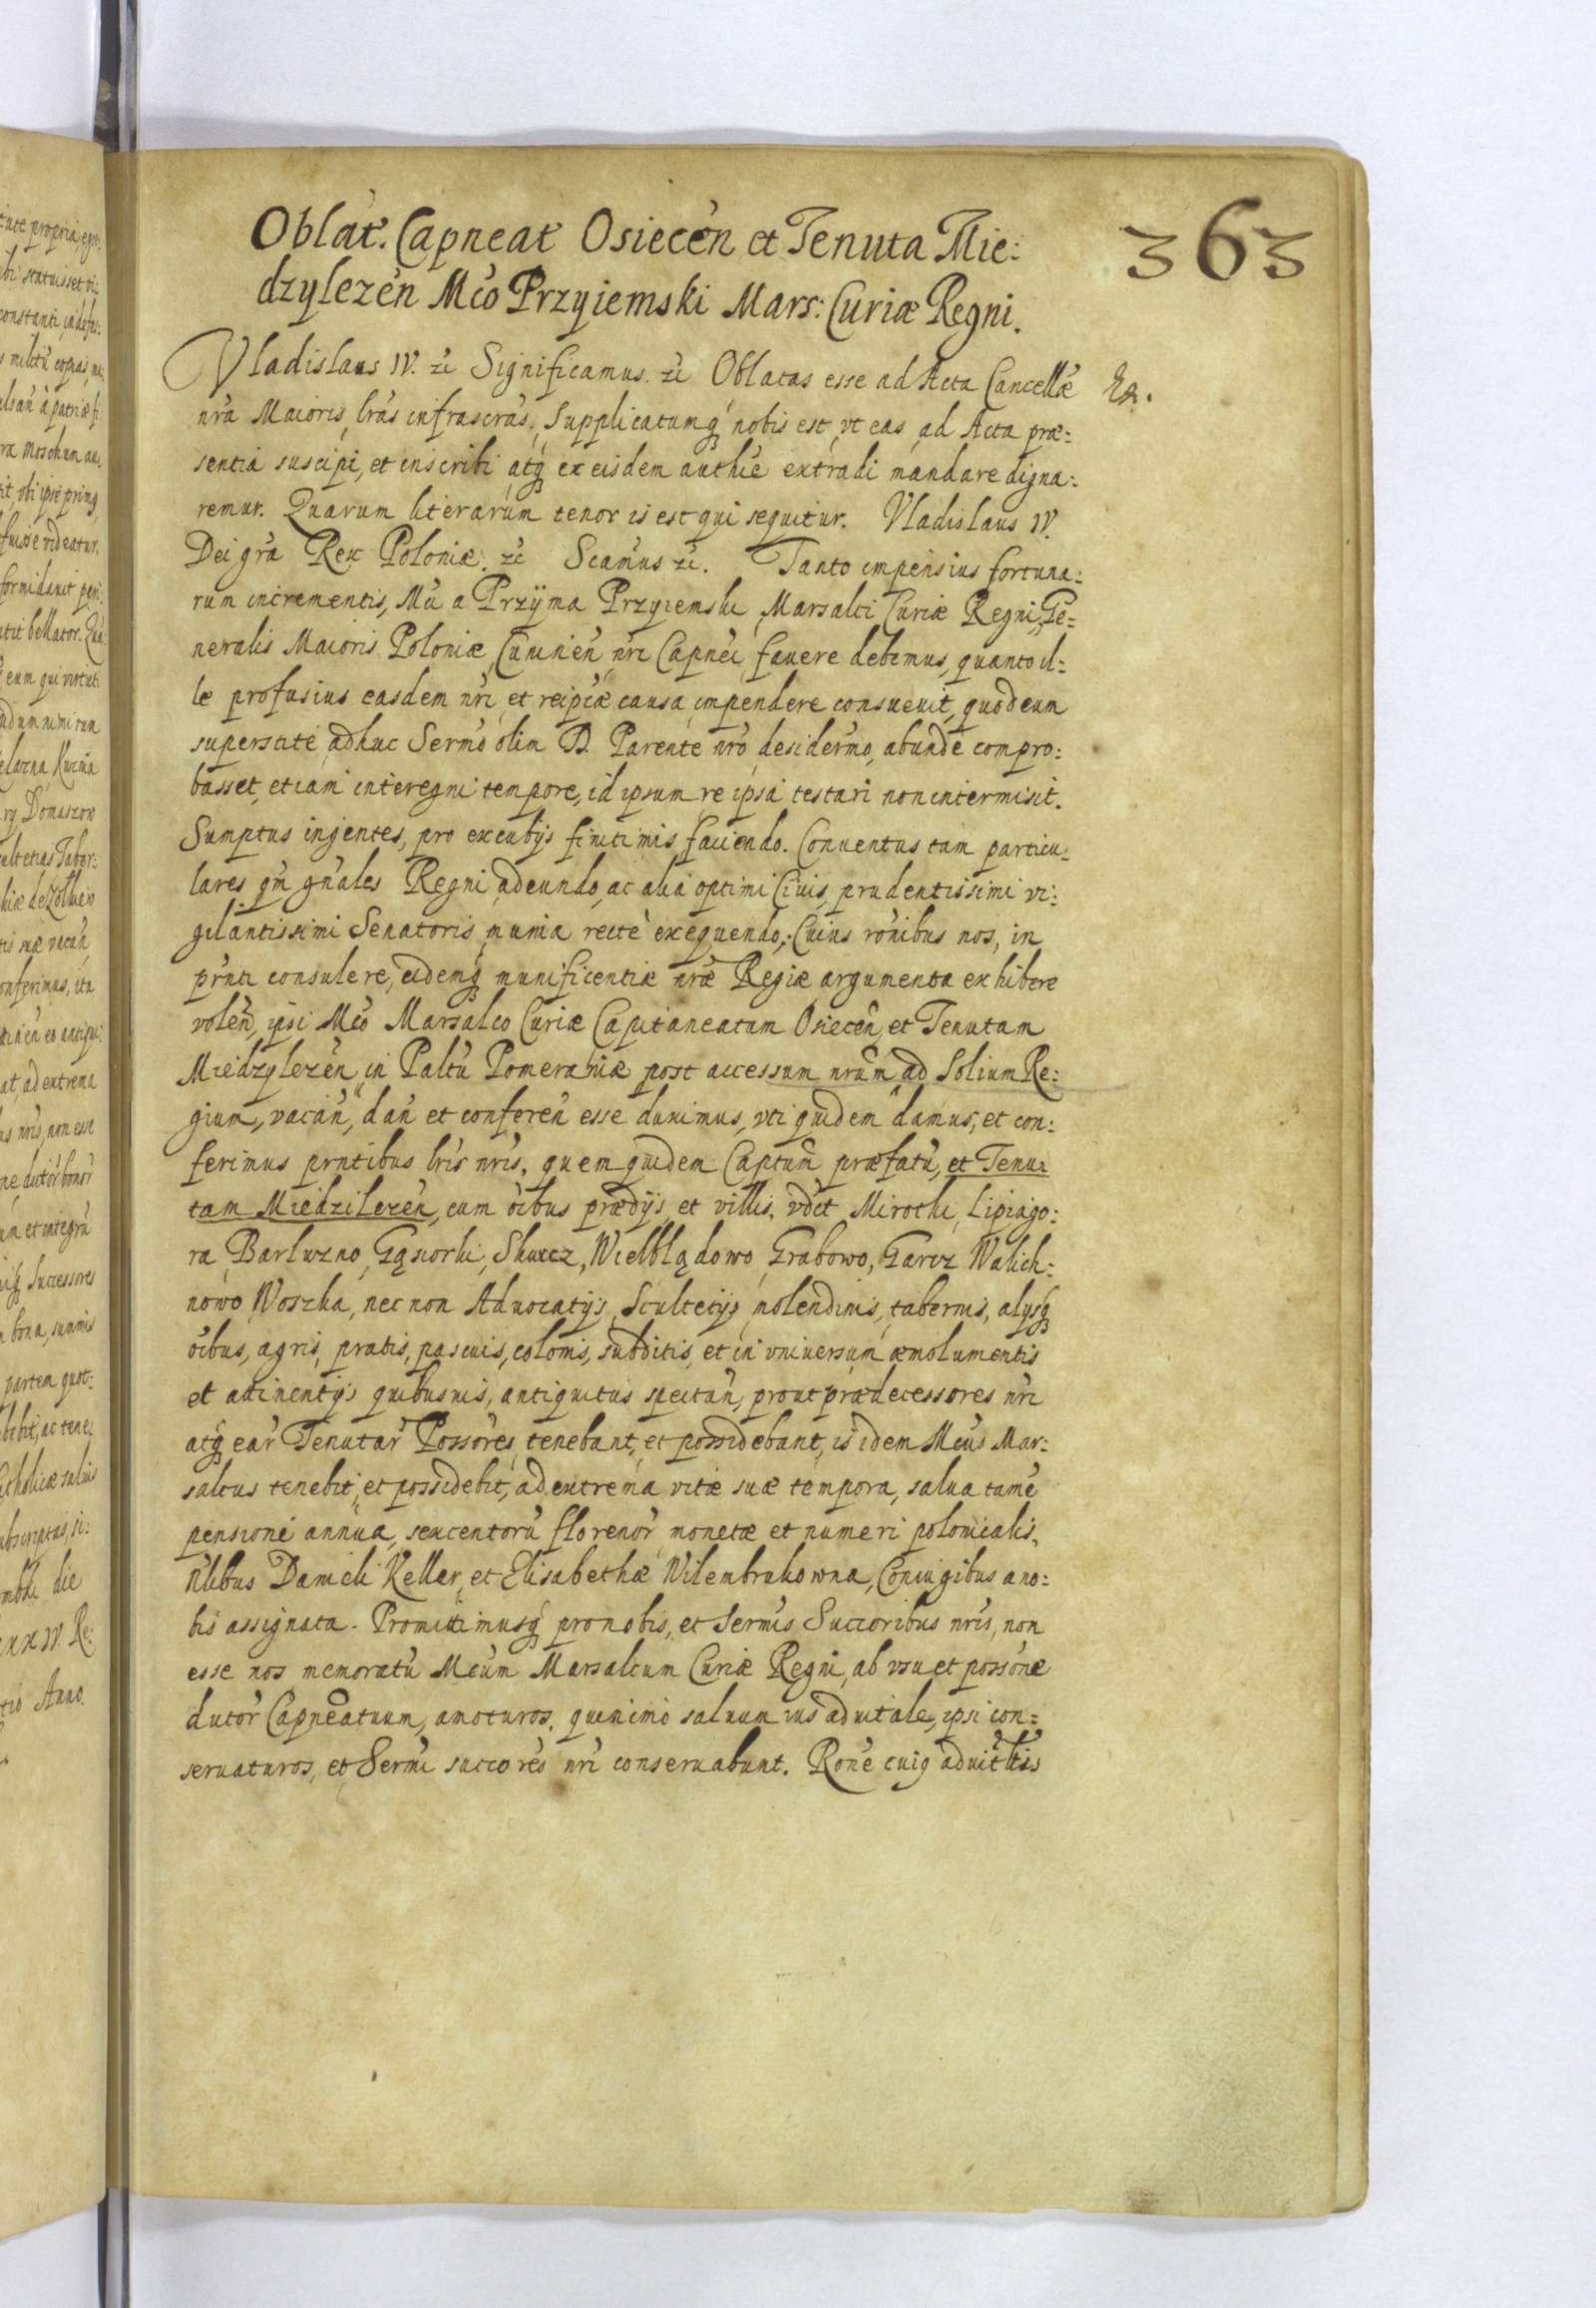 363
Oblat. Capneat Osiecen et Tenuta Mie:
dzylezen Mco Przyiemski Mars: Curiæ Regni.
Vladislaus IV. &c Significamus. &c Oblatas esse ad Acta Cancellæ
Ex.
nra Maioris, lras infrascras, Supplicatumq nobis est, vt eas ad Acta præ:
sentia suscipi, et inscribi atq ex eisdem authce extradi mandare digna:
remur. Quarum literarum tenor is est qui sequitur. Vladislaus IV.
Dei gra Rex Poloniæ. &c Scamus &c. Tanto impensius fortuna:
rum incrementis, Mci a Przyma Przyiemski, Marsalci Curiæ Regni, Ge=
neralis Maioris Poloniæ, Cuninen nri Capnei, fauere debemus, quanto il=
le profusius easdem nri et reipcæ causa impendere consueuit, quod cum
superstite adhuc Sermo olim D. Parente nro desidermo, abunde compro:
basset, etiam interegni tempore, id ipsum re ipsa testari non intermisit.
Sumptus ingentes, pro excubijs finitimis faciendo. Conuentus tam particu:
lares qm gnales Regni adeundo, ac alia optimi Ciuis, prudentissimi vi:
gilantissimi Senatoris munia recte exequendo; Cuius ronibus nos, in
prnti consulere, eidemq munificentiæ nræ Regiæ argumenta exhibere
volen, ipsi Mco Marsalco Curiæ Capitaneatum Osiecen, et Tenutam
Miedzylezen in Paltu Pomeraniæ post accessum nrum ad Solium Re:
gium, vacan, dan et conferen esse duximus, vti quidem damus, et con:
ferimus prntibus lris nris, quem quidem Captum præfatu, et Tenu:
tam Miedzilezen, cum oibus prædijs, et villis, vdct Mirotki, Lipiago:
ra, Barlwzno, Gąsiorki, Skurcz, Wielblądowo, Grabowo, Garcz Walich:
nowo Woszka, nec non Aduocatijs, Scultetijs, molendinis, tabernis, alysq
oibus, agris, pratis, pascuis, colonis, subditis, et in vniuersum æmolumentis
et attinentijs quibusuis, antiquitus spectan, prout prædecessores nri
atq ear Tenutar Possores, tenebant, et possidebant, is idem Mcus Mar:
salcus tenebit, et possidebit, ad extrema vitæ suæ tempora, salua tame
pensione annua, sexcentoru florenor monetæ et numeri polonicalis,
Nlibus Danieli Keller, et Elisabethæ Wilembrukowna, Coniugibus a no:
bis assignata. Promittimusq pro nobis, et Sermis Succoribus nris, non
esse nos memoratu Mcum Marsalcum Curiæ Regni, ab vsu et possone
dictor Capneatuum, amoturos, quinimo saluum ius aduitale, ipsi con=
seruaturos, et Sermi succores nri conseruabunt. Rone cuiq aduitlis